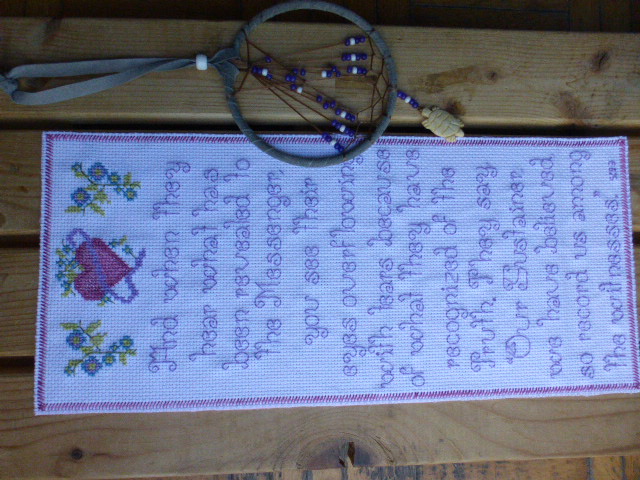 And when they
hear what has
been revealed to
the Messenger,
you see their
eyes overflowing
with tears because
of what they have
recognized of the
Truth. They say
Our Sustainer,
we have believed
so record us among
the witnesses."